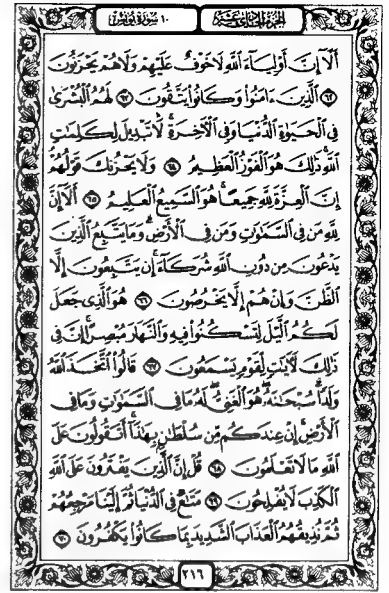 الجزء الحادى عشر ١٠ سورة يونس
أَلَآ إِنَّ أَوْلِيَآءَ ٱللَّهِ لَا خَوْفٌ عَلَيْهِمْ وَلَا هُمْ يَحْزَنُونَ
﴿٦٢﴾ ٱلَّذِينَ ءَامَنُوا۟ وَكَانُوا۟ يَتَّقُونَ ﴿٦٣﴾ لَهُمُ ٱلْبُشْرَىٰ
فِى ٱلْحَيَوٰةِ ٱلدُّنْيَا وَفِى ٱلْءَاخِرَةِ ۚ لَا تَبْدِيلَ لِكَلِمَٰتِ
ٱللَّهِ ۚ ذَٰلِكَ هُوَ ٱلْفَوْزُ ٱلْعَظِيمُ ﴿٦٤﴾ وَلَا يَحْزُنكَ قَوْلُهُمْ ۘ
إِنَّ ٱلْعِزَّةَ لِلَّهِ جَمِيعًا ۚ هُوَ ٱلسَّمِيعُ ٱلْعَلِيمُ ﴿٦٥﴾ أَلَآ إِنَّ
لِلَّهِ مَن فِى ٱلسَّمَٰوَٰتِ وَمَن فِى ٱلْأَرْضِ ۗ وَمَا يَتَّبِعُ ٱلَّذِينَ
يَدْعُونَ مِن دُونِ ٱللَّهِ شُرَكَآءَ ۚ إِن يَتَّبِعُونَ إِلَّا
ٱلظَّنَّ وَإِنْ هُمْ إِلَّا يَخْرُصُونَ ﴿٦٦﴾ هُوَ ٱلَّذِى جَعَلَ
لَكُمُ ٱلَّيْلَ لِتَسْكُنُوا۟ فِيهِ وَٱلنَّهَارَ مُبْصِرًا ۚ إِنَّ فِى
ذَٰلِكَ لَءَايَٰتٍ لِّقَوْمٍ يَسْمَعُونَ ﴿٦٧﴾ قَالُوا۟ ٱتَّخَذَ ٱللَّهُ
وَلَدًا ۗ سُبْحَٰنَهُۥ ۖ هُوَ ٱلْغَنِىُّ ۖ لَهُۥ مَا فِى ٱلسَّمَٰوَٰتِ وَمَا فِى
ٱلْأَرْضِ ۚ إِنْ عِندَكُم مِّن سُلْطَٰنٍۭ بِهَٰذَآ ۚ أَتَقُولُونَ عَلَى
ٱللَّهِ مَا لَا تَعْلَمُونَ ﴿٦٨﴾ قُلْ إِنَّ ٱلَّذِينَ يَفْتَرُونَ عَلَى ٱللَّهِ
ٱلْكَذِبَ لَا يُفْلِحُونَ ﴿٦٩﴾ مَتَٰعٌ فِى ٱلدُّنْيَا ثُمَّ إِلَيْنَا مَرْجِعُهُمْ
ثُمَّ نُذِيقُهُمُ ٱلْعَذَابَ ٱلشَّدِيدَ بِمَا كَانُوا۟ يَكْفُرُونَ ﴿٧٠﴾
٢١٦